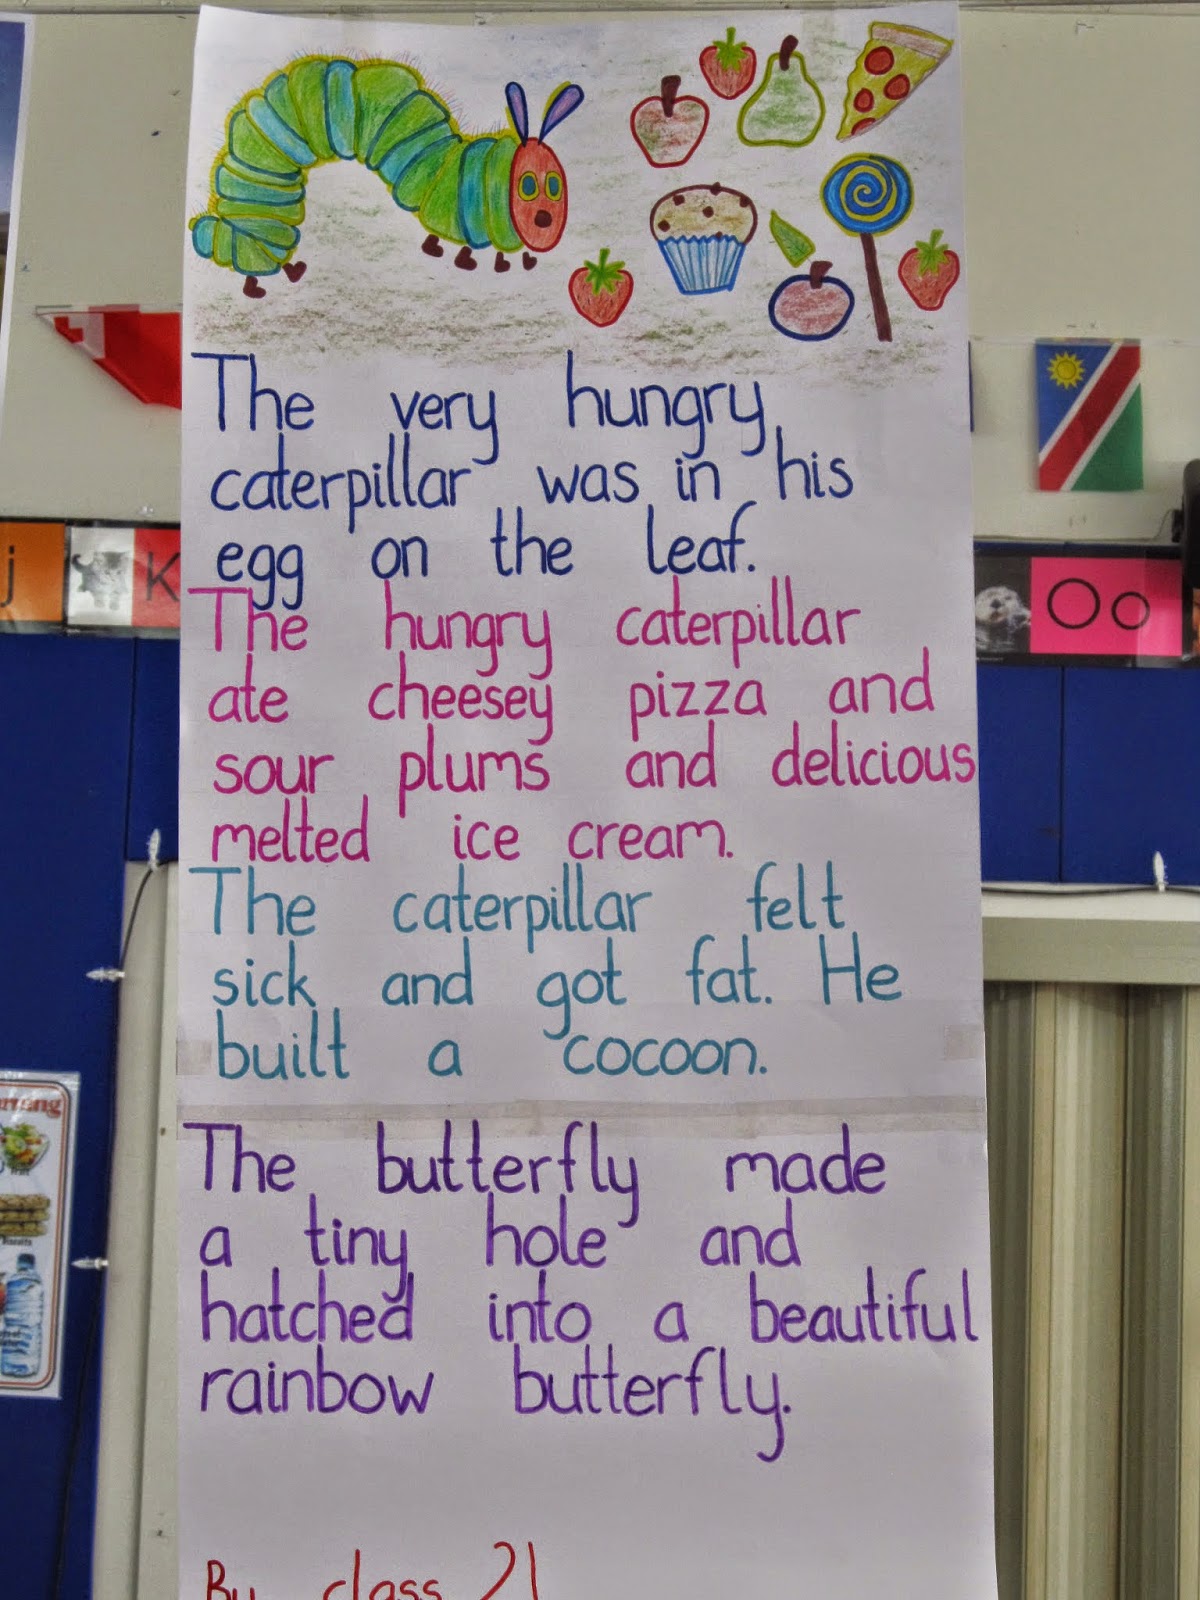 The very hungry
caterpillar was in his
egg on the leaf.
The hungry caterpillar
ate cheesey pizza and
sour plums and delicious
melted ice cream.
The caterpillar felt
sick and got fat. He
built a cocoon.
The butterfly made
a tiny hole and
hatched into a beautiful
rainbow butterfly.
By class 21
j
K
Oo